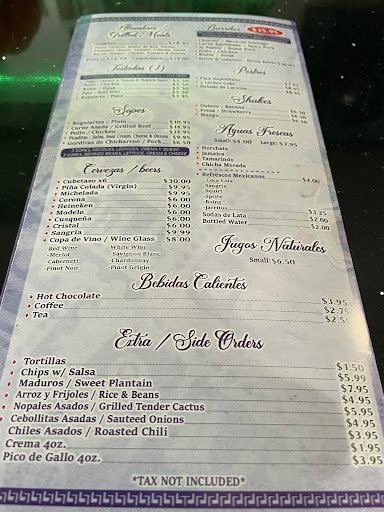 Alambres
Grilled Meats
Tostadas (3)
Sopes
Regulartes / Plain $10.99
Carne Asada / Grilled Beef $14.95
Pollo / Chicken $14.95
Picaditas / Salsa, Sour Cream, Cheese & Onions $9.95
Gorditas de Chicharron / Pork $6.50
Cervezas / beers
Cubetazo x6 $30.00
Piña Colada (Virgin) $9.95
Michelada $9.95
Corona $6.00
Heineken $6.00
Modelo $6.00
Cusqueña $6.00
Cristal $6.00
Sangria $9.99
Copa de Vino / Wine Glass $8.00
Red Wine White Wine
-Merlot -Savignon Blanc
Cabernett -Chardonnay
-Pinot Noir -Pinot Grigio
Burritos $15.95
Postres
Flan Napolitano
3 Leches Cake
Shakes
Guineo / Banana $6.50
Fresa / Strawberry $6.50
Mango $6.50
Aguas Frescas
Small: $4.00 Large: $7.95
Horchata
Jamaica
Tamarindo
Chicha Morada
Refrescos Mexicanos $4.00
Coca Cola
Sangria
Squirt
Sprite
Boing
Jarritos
Sodas de Lata $3.25
Bottled Water $2.00
Jugos Naturales
Small: $6.50
Bebidas Calientes
Hot Chocolate $3.95
Coffee $2.75
Tea $2.50
Extra / Side Orders
Tortillas $1.50
Chips w/ Salsa $5.99
Maduros / Sweet Plantain $7.95
Arroz y Frijoles / Rice & Beans $4.95
Nopales Asados / Grilled Tender Cactus $5.95
Cebollitas Asadas / Sauteed Onions $4.95
Chiles Asados / Roasted Chili $3.95
Crema 4oz. $1.95
Pico de Gallo 4oz. $3.95
*TAX NOT INCLUDED*